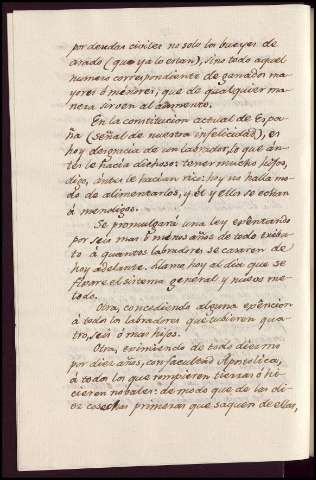 por deudas civiles no solo los bueyes de
arado (que ya lo estan), sino todo aquel
numero correspondiente de ganados ma
yores ó menores, que de qualquier ma
nera sirven al aumento.
En la constitucion actual de Espa
ña (señal de nuestra infelicidad), es
hoy desgracia de un labrador, lo que án
tes le hacía dichoso: tener muchos hijos,
digo, ántes le hacían rico: hoy no halla mo
do de alimentarlos, y él y ellos se echan
á mendigos.
Se promulgará una ley exêntando
por seis mas ó menos años de todo tribu
to á quantos labradores se casaren de
hoy adelante. Llamo hoy al dia que se
fixare el sistema general y nuevo me
todo.
Otra, concediendo alguna exêncion
á todos los labradores que tubieren qua
tro, seis ó mas hijos.
Otra, eximiendo de todo diezmo
por diez años, con facultad Apostolica,
á todos los que rompieren tierras ó hi
cieren nobales: de modo que de las di
ez cosechas primeras que saquen de ellas,